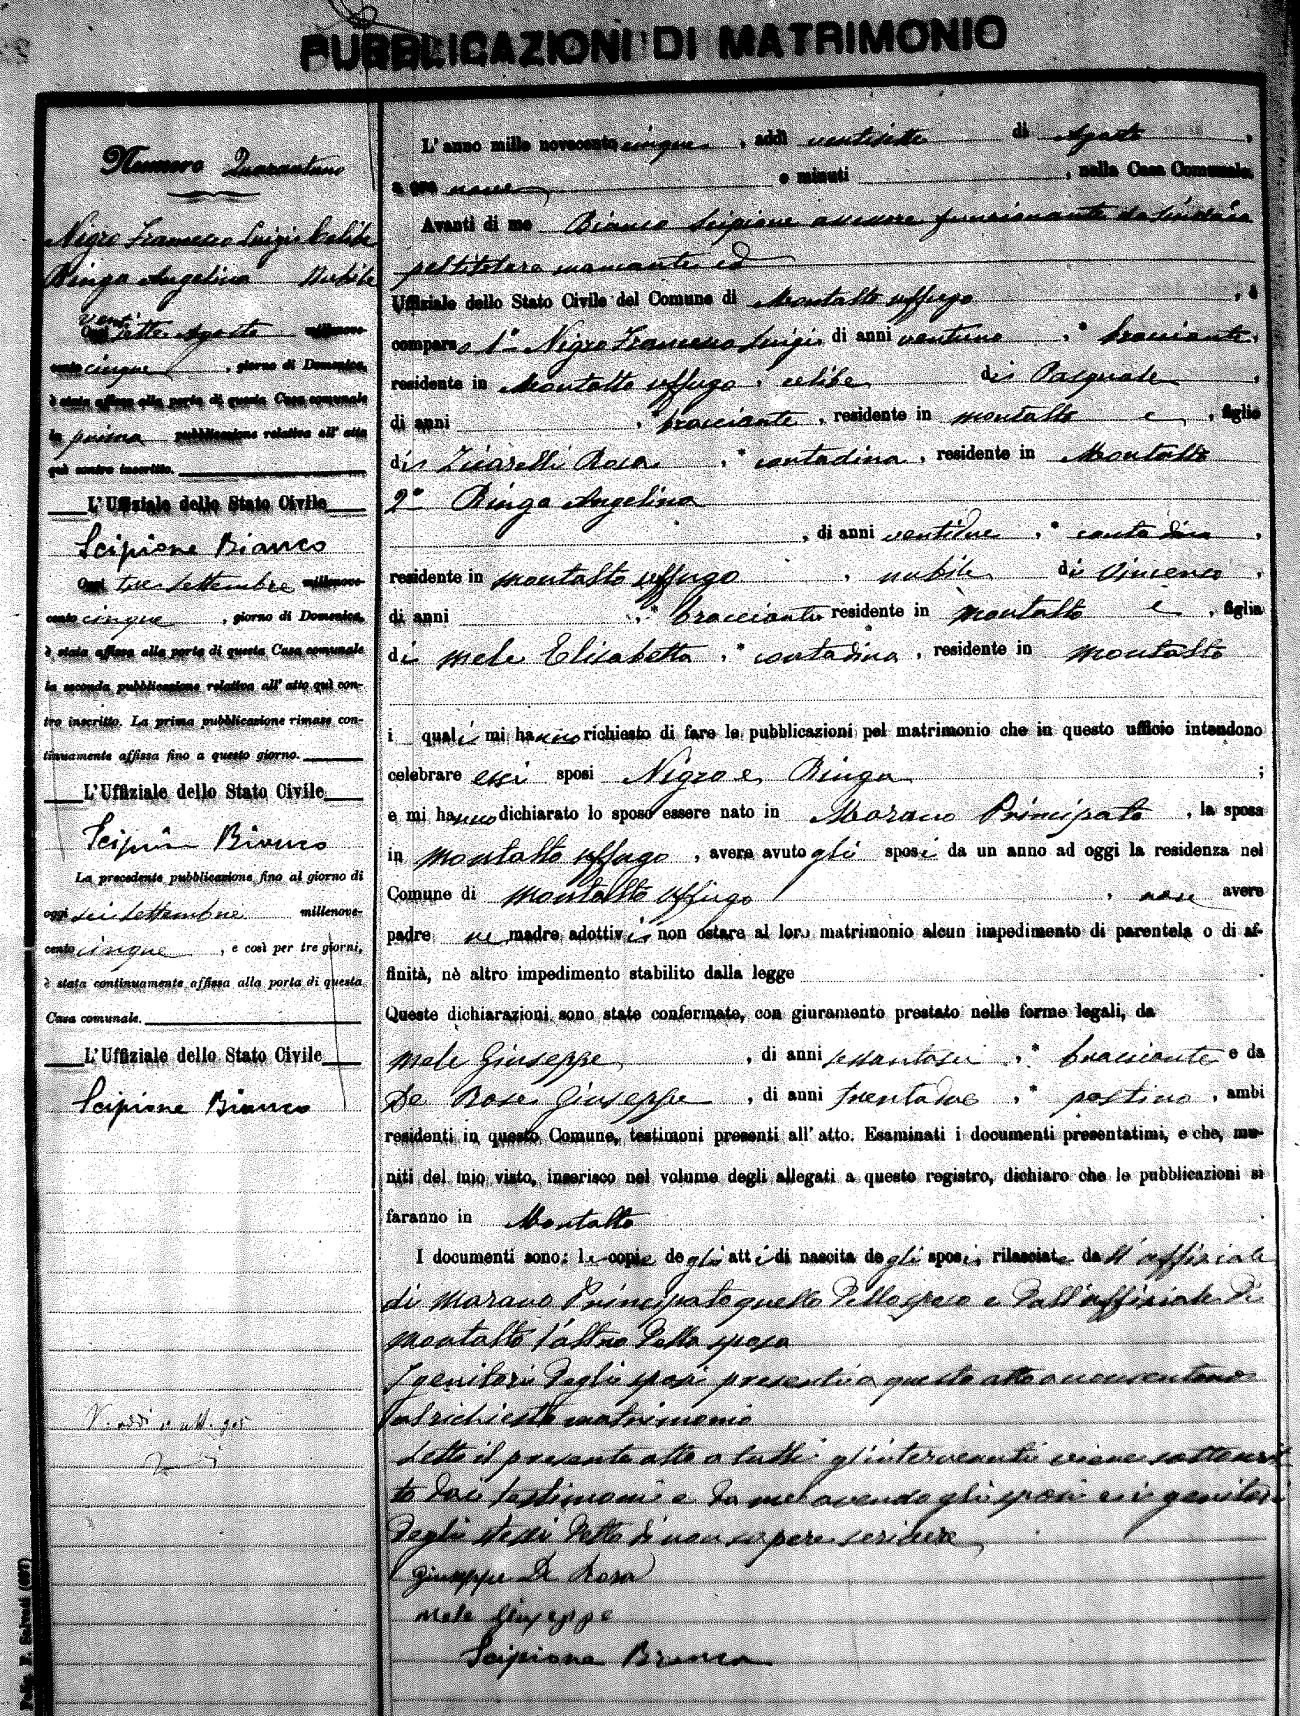 PUBBLICAZIONI DI MATRIMONIO
Numero Quarantuno
Nigro Francesco Luigi Celibe
Binga Angelina Nubile
Oggi ventisette Agosto millenove-
cento cinque, giorno di Domenica,
è stata affissa alla porta di questa Casa comunale
la prima pubblicazione relativa all' atto
quì contro inscritto.
L'Uffiziale dello Stato Civile
Scipione Bianco
Oggi tre Settembre millenove-
cento cinque, giorno di Domenica,
è stata affissa alla porta di questa Casa comunale
la seconda pubblicazione relativa all' atto quì con-
tro inscritto. La prima pubblicazione rimase con-
tinuamente affissa fino a questo giorno.
L'Uffiziale dello Stato Civile
Scipion Bianco
La precedente pubblicazione fino al giorno di
oggi sei Settembre millenove-
cento cinque, e così per tre giorni,
è stata continuamente affissa alla porta di questa
Casa comunale.
L'Uffiziale dello Stato Civile
Scipione Bianco
L' anno mille novecento cinque, addì ventisette di Agosto,
a ore nove e minuti , nella Casa Comunale.
Avanti di me Bianco Scipione assessore funzionante da sindaco
pel titolare mancante ed
Uffiziale dello Stato Civile del Comune di Montalto Uffugo, è
comparso 1° Nigro Francesco Luigi di anni ventuno, * bracciante,
residente in Montalto Uffugo, celibe di Pasquale,
di anni , * bracciante, residente in Montalto e, figlio
di Zicarelli Rosa, * contadina, residente in Montalto
2° Binga Angelina
, di anni ventidue, * contadina,
residente in Montalto Uffugo, nubile di Vincenzo,
di anni , * bracciante residente in Montalto e, figlia
di Mele Elisabetta, * contadina, residente in Montalto
i quali mi hanno richiesto di fare le pubblicazioni pel matrimonio che in questo ufficio intendono
celebrare essi sposi Nigro e Binga ;
e mi hanno dichiarato lo sposo essere nato in Marano Principato, la sposa
in Montalto Uffugo, avere avuto gli sposi da un anno ad oggi la residenza nel
Comune di Montalto Uffugo, non avere
padre ne madre adottivi non ostare al loro matrimonio alcun impedimento di parentela o di af-
finità, nè altro impedimento stabilito dalla legge .
Queste dichiarazioni sono state confermate, con giuramento prestato nelle forme legali, da
Mele Giuseppe, di anni sessantasei, * bracciante e da
De Rose Giuseppe, di anni trentadue, * postino, ambi
residenti in questo Comune, testimoni presenti all' atto. Esaminati i documenti presentatimi, e che, mu-
niti del mio visto, inserisco nel volume degli allegati a questo registro, dichiaro che le pubblicazioni si
faranno in Montalto .
I documenti sono: le copie degli atti di nascita degli sposi rilasciate dall'uffiziale
di Marano Principato quello dello sposo e dall'uffiziale di
Montalto l'altro della sposa
I genitori degli sposi presenti a questo atto acconsentono
al richiesto matrimonio
Letto il presente atto a tutti gl'intervenuti viene sottoscrit
to dai testimoni e da me avendo gli sposi e i genitori
degli stessi detto di non sapere scrivere
Giuseppe De Rosa
Mele Giuseppe
Scipione Bianco